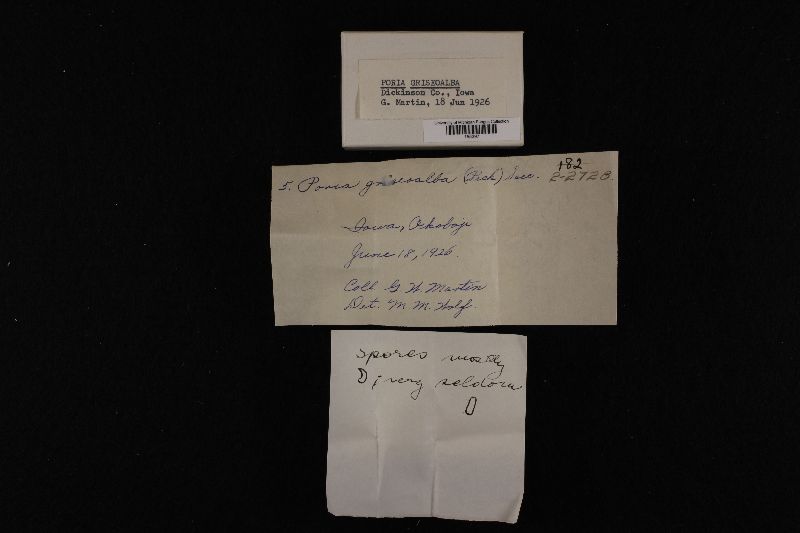 PORIA GRISEOALBA
Dickinson Co., Iowa
G. Martin, 18 Jun 1926
University of Michigan Fungus Collection
182
5. Poria griseoalba (Peck) Sacc. 2-2728.
Iowa, Okoboji
June 18, 1926.
Coll. G. W. Martin
Det. M. M. Wolf.
spores mostly
D; very seldom
0